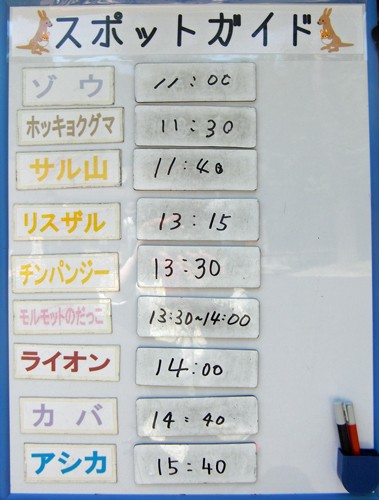 スポットガイド
ゾウ 11:00
ホッキョクグマ 11:30
サル山 11:40
リスザル 13:15
チンパンジー 13:30
モルモットのだっこ 13:30~14:00
ライオン 14:00
カバ 14:40
アシカ 15:40